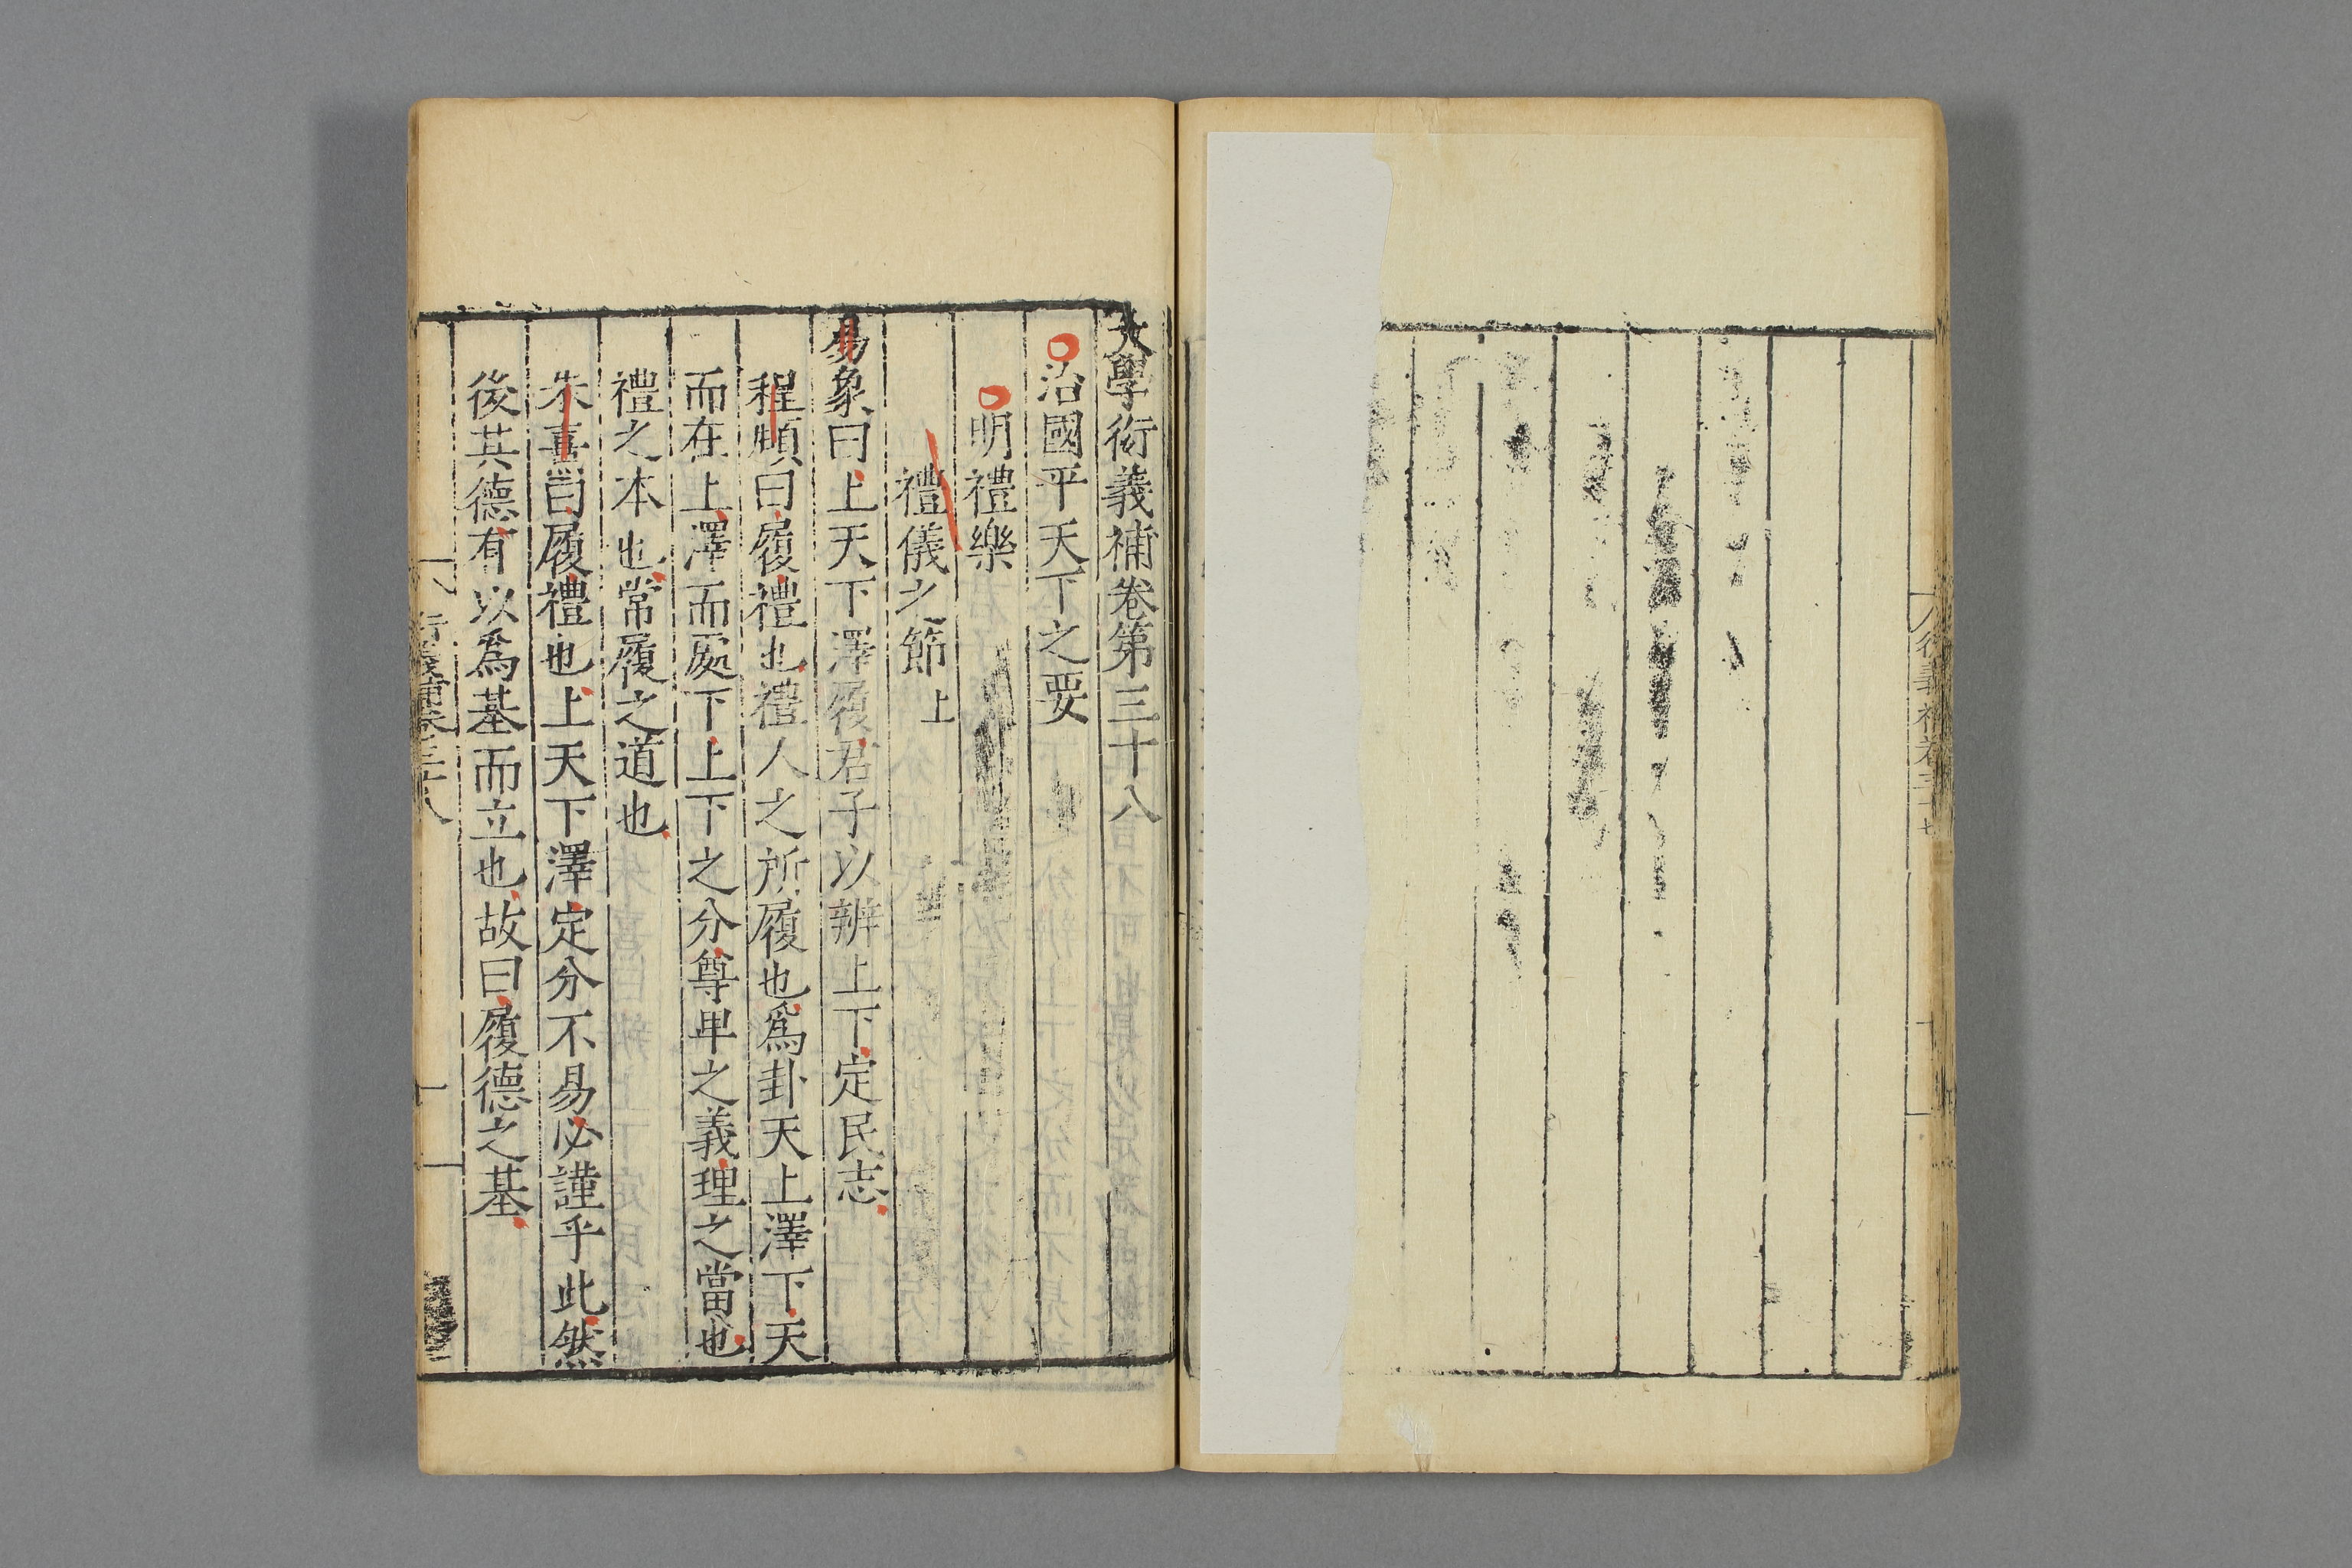 衍義補卷三十七
大學衍義補卷第三十八
治國平天下之要
明禮樂
禮儀之節上
易象曰上天下澤履君子以辨上下定民志
程頤曰履禮也禮人之所履也爲卦天上澤下天
而在上澤而處下上下之分尊卑之義理之當也
禮之本也常履之道也
朱熹曰履禮也上天下澤定分不易必謹乎此然
後其德有以爲基而立也故曰履德之基
衍義補卷三十八